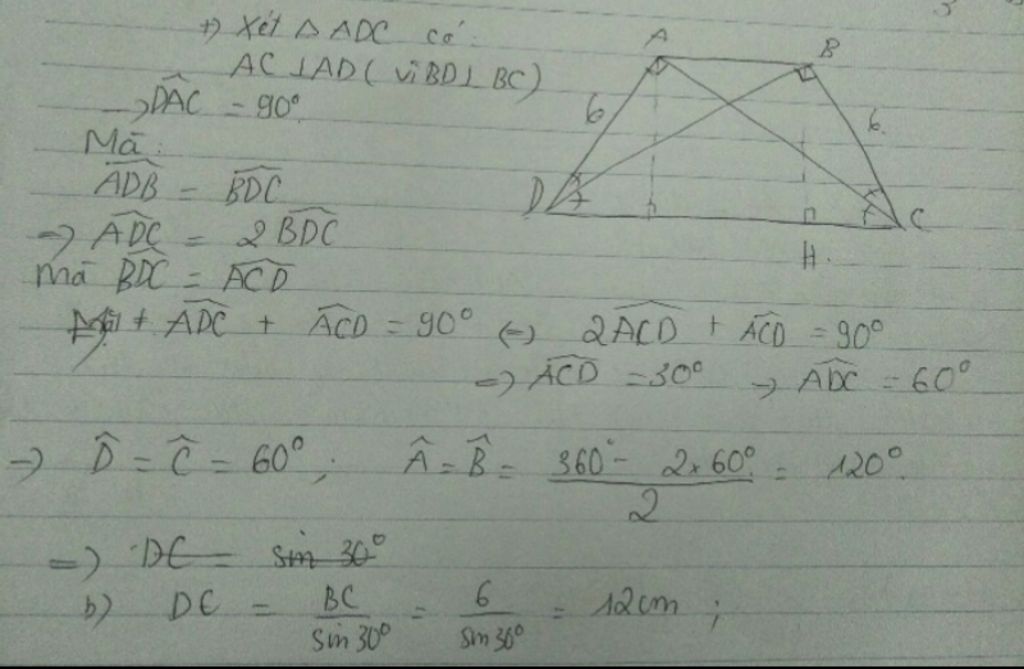 +) Xét Δ ADC có:
AC ⊥ AD ( vì BD ⊥ BC)
→ \widehat{DAC} = 90°.
Mà:
\widehat{ADB} = \widehat{BDC}
⇒ \widehat{ADC} = 2\widehat{BDC}
mà \widehat{BDC} = \widehat{ACD}
+ \widehat{ADC} + \widehat{ACD} = 90° (=) 2\widehat{ACD} + \widehat{ACD} = 90°
=) \widehat{ACD} = 30° → \widehat{ADC} = 60°
→ \widehat{D} = \widehat{C} = 60°; \widehat{A} = \widehat{B} = \frac{360° - 2 x 60°}{2} = 120°.
=) DC = sin 30°
b) DC = \frac{BC}{sin 30°} = \frac{6}{sin 30°} = 12cm ;
A
B
6
6.
D
C
H.